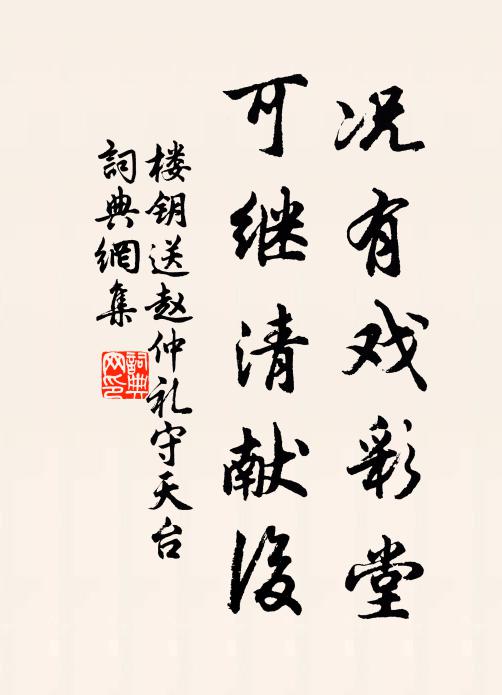 况有戏彩堂
可继清献后
楼钥送赵仲礼守天台
詞典網集
詞典
网印